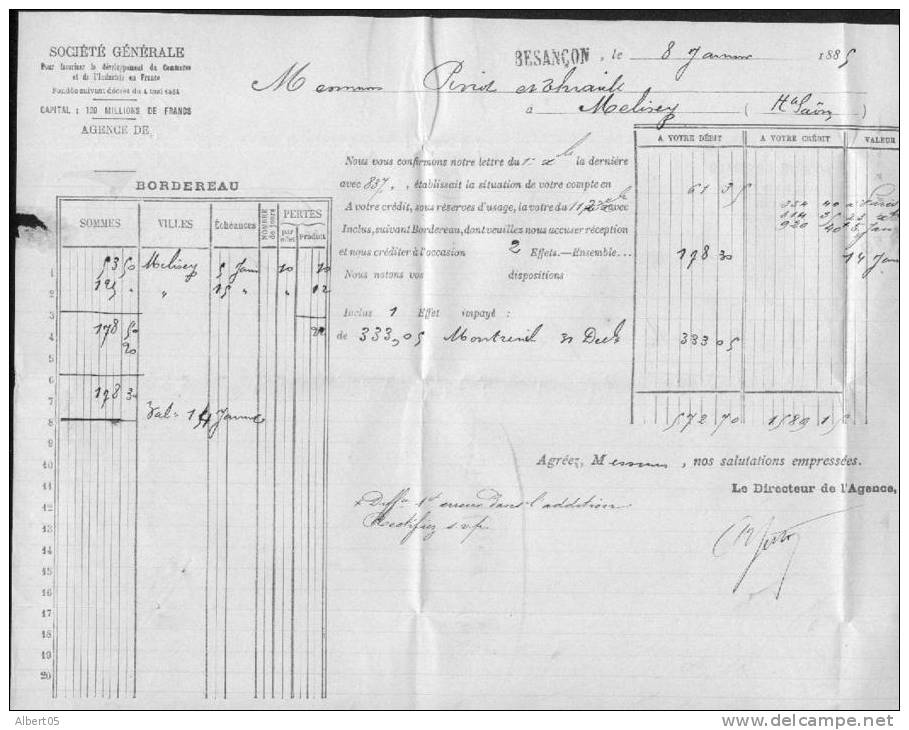 SOCIÉTÉ GÉNÉRALE
Pour favoriser le développement du Commerce
et de l'Industrie en France
Fondée suivant décret du 4 mai 1864
CAPITAL : 120 MILLIONS DE FRANCS
AGENCE DE
BESANÇON, le 8 Janvier 1885
Messieurs et
à Melisey (Hte Saône)
BORDEREAU
SOMMES VILLES Échéances NOMBRE de jours PERTES par effet Produit
1 53 50 Melisey 5 Janv 10 10
2 125 " " 15 " " 12
3
4 178 50 22
5 20
6
7 178 30
8 Val. 14 Janvier
9
10
11
12
13
14
15
16
17
18
19
20
Nous vous confirmons notre lettre du la dernière
avec 837, établissait la situation de votre compte en
A votre crédit, sous réserves d'usage, la votre du avec
Inclus, suivant Bordereau, dont veuillez nous accuser réception
et nous créditer à l'occasion 2 Effets.—Ensemble...
Nous notons vos dispositions
Inclus 1 Effet impayé :
de 333,05 Montreuil 31 Decb
A VOTRE DÉBIT A VOTRE CRÉDIT VALEUR
61 35
354 40
314 35 23
920 40 5 Jan
178 30 14 Jan
333 05
572 70 1589 15
Agréez, Messieurs, nos salutations empressées.
Le Directeur de l'Agence,
erreur dans l'addition
Rectifiez s.v.p.
Albert05
http://www.delcampe.net